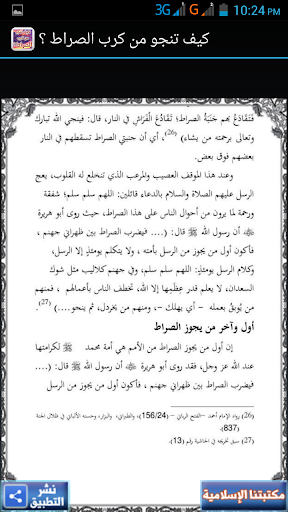 3G 4G 10:24 PM
كيف تنجو من كرب الصراط ؟
فتقادع بهم جنبة الصراط؛ تقادع الفراش في النار، قال: فينجي الله تبارك
وتعالى برحمته من يشاء) (26)، أي أن جنبتي الصراط تسقطهم في النار
بعضهم فوق بعض.
وعند هذا الموقف العصيب والمرعب الذي تنخلع له القلوب، يعج
الرسل عليهم الصلاة والسلام بالدعاء قائلين: اللهم سلم سلم؛ شفقة
ورحمة لما يرون من أحوال الناس على هذا الصراط، حيث روى أبو هريرة
أن رسول الله ﷺ قال: (.... فيضرب الصراط بين ظهراني جهنم ،
فأكون أول من يجوز من الرسل بأمته ، ولا يتكلم يومئذٍ إلا الرسل،
وكلام الرسل يومئذٍ: اللهم سلم سلم، وفي جهنم كلاليب مثل شوك
السعدان، لا يعلم قدر عِظَمِها إلا الله، تخطف الناس بأعمالهم ، فمنهم
من يُوبقُ بعمله – أي يهلك –، ومنهم من يخردل، ثم ينجو....) (27).
أول وآخر من يجوز الصراط
إن أول من يجوز الصراط من الأمم هي أمة محمد ﷺ لكرامتها
عند الله عز وجل، فقد روى أبو هريرة أن رسول الله ﷺ قال: (....
فيضرب الصراط بين ظهراني جهنم ، فأكون أول من يجوز من الرسل
(26) رواه الإمام أحمد –الفتح الرباني – (156/24)، والطبراني، والبزار، وحسنه الألباني في ظلال الجنة
(837).
(27) سبق تخريجه في الحاشية رقم (13).
مكتبتنا الإسلامية
نشر
التطبيق